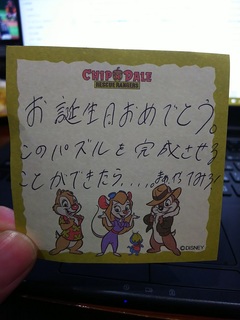 CHIP DALE
RESCUE RANGERS
お誕生日おめでとう。
このパズルを完成させる
ことができたら....。まぁやってみろ!
©DISNEY